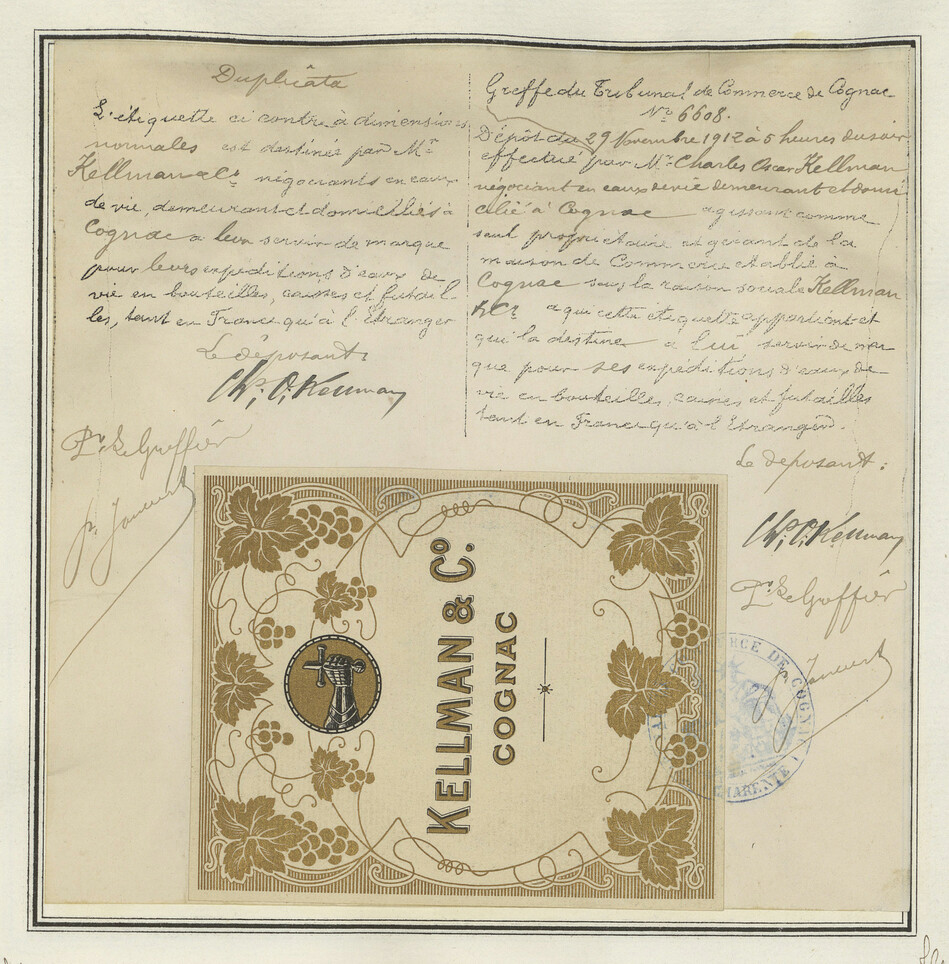 Duplicata
L'étiquette ci contre à dimensions
normales est destinée par Mr
Kellman & Co négociants en eaux
de vie, demeurant et domiciliés à
Cognac a leur servir de marque
pour leurs expéditions d'eaux de
vie en bouteilles, caisses et futail-
les, tant en France qu'à l'Etranger
Le déposant:
Ch. O. Kellman
Pr. Le Greffier
Greffe du Tribunal de Commerce de Cognac
No 6608.
Dépôt du 29 Novembre 1912 à 5 heures du soir
effectué par Mr Charles Oscar Kellman
négociant en eaux de vie demeurant et domi
cilié à Cognac agissant comme
seul propriétaire et gérant de la
maison de Commerce établie à
Cognac sous la raison sociale Kellman
& Co a qui cette étiquette appartient et
qui la destine a lui servir de mar
que pour ses expéditions d'eaux de
vie en bouteilles, caisses et futailles
tant en France qu'à l'Etranger.
Le déposant:
Ch. O. Kellman
Pr. Le Greffier
KELLMAN & Co.
COGNAC
RCE DE COGN
ARENTE